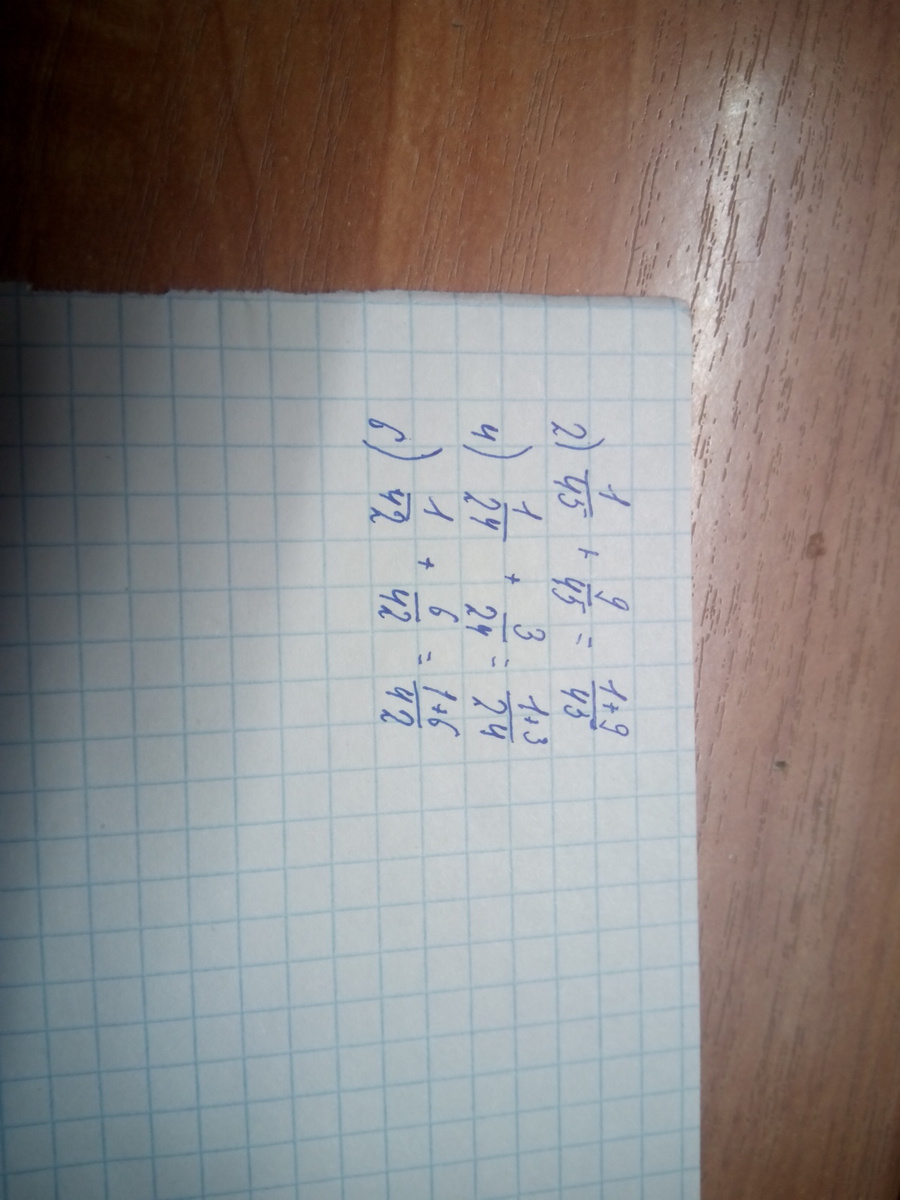 2) 1/45 + 9/45 = 1+9/45
4) 1/24 + 3/24 = 1+3/24
6) 1/42 + 6/42 = 1+6/42